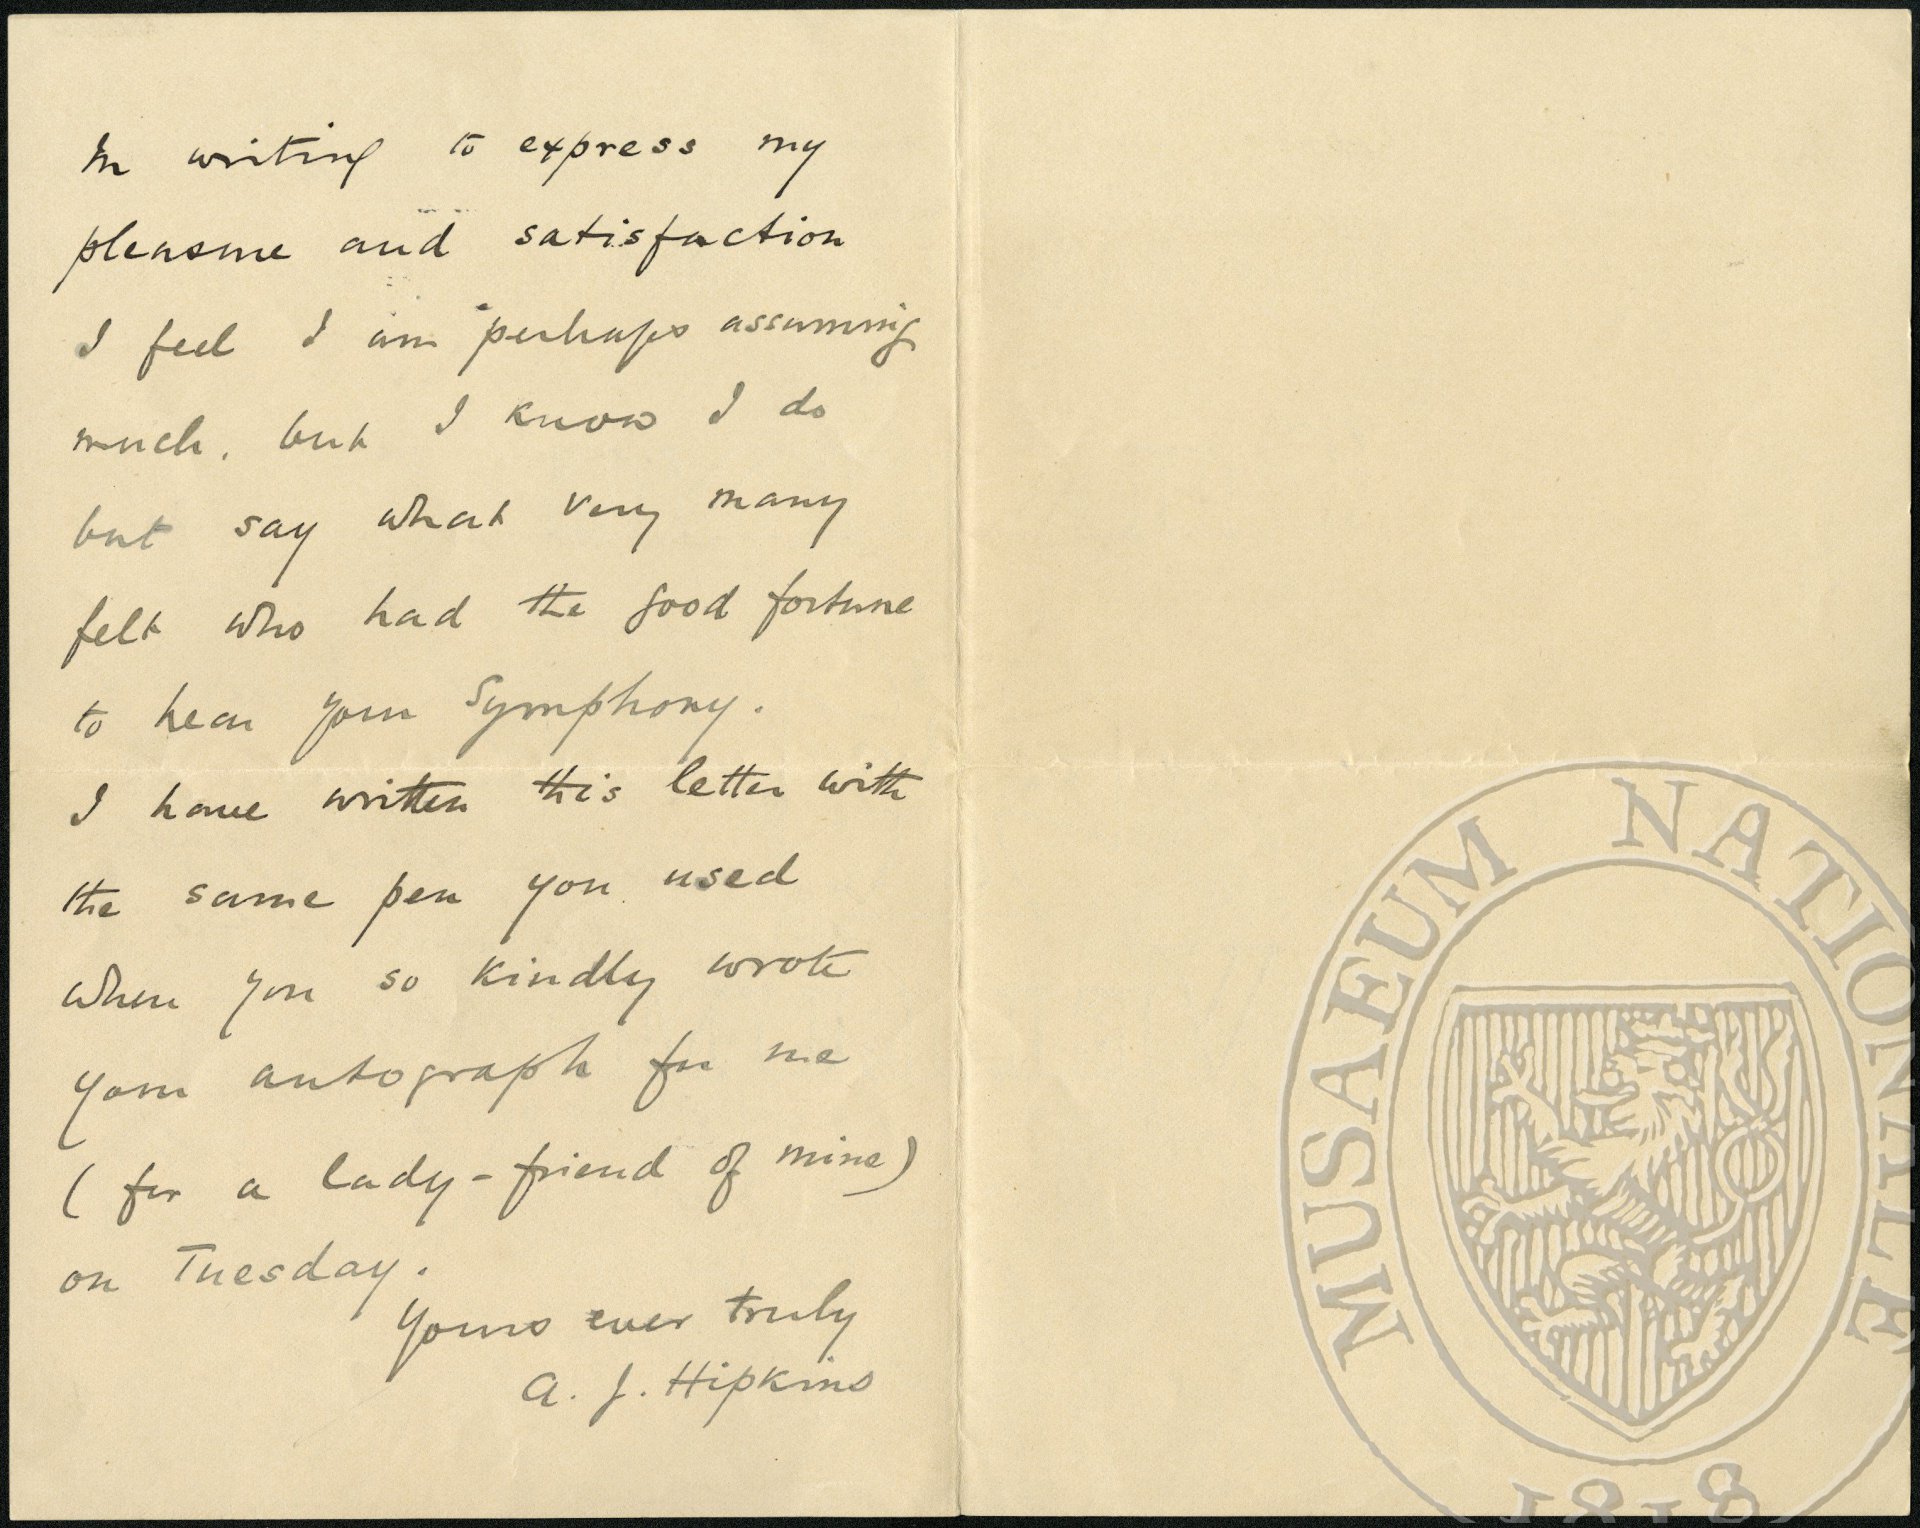 In writing to express my
pleasure and satisfaction
I feel I am perhaps assuming
much, but I know I do
but say what very many
felt who had the good fortune
to hear your Symphony.
I have written this letter with
the same pen you used
when you so kindly wrote
your autograph for me
( for a lady-friend of mine )
on Tuesday.
Yours ever truly
A. J. Hipkins
MUSAEUM NATIONALE
1818